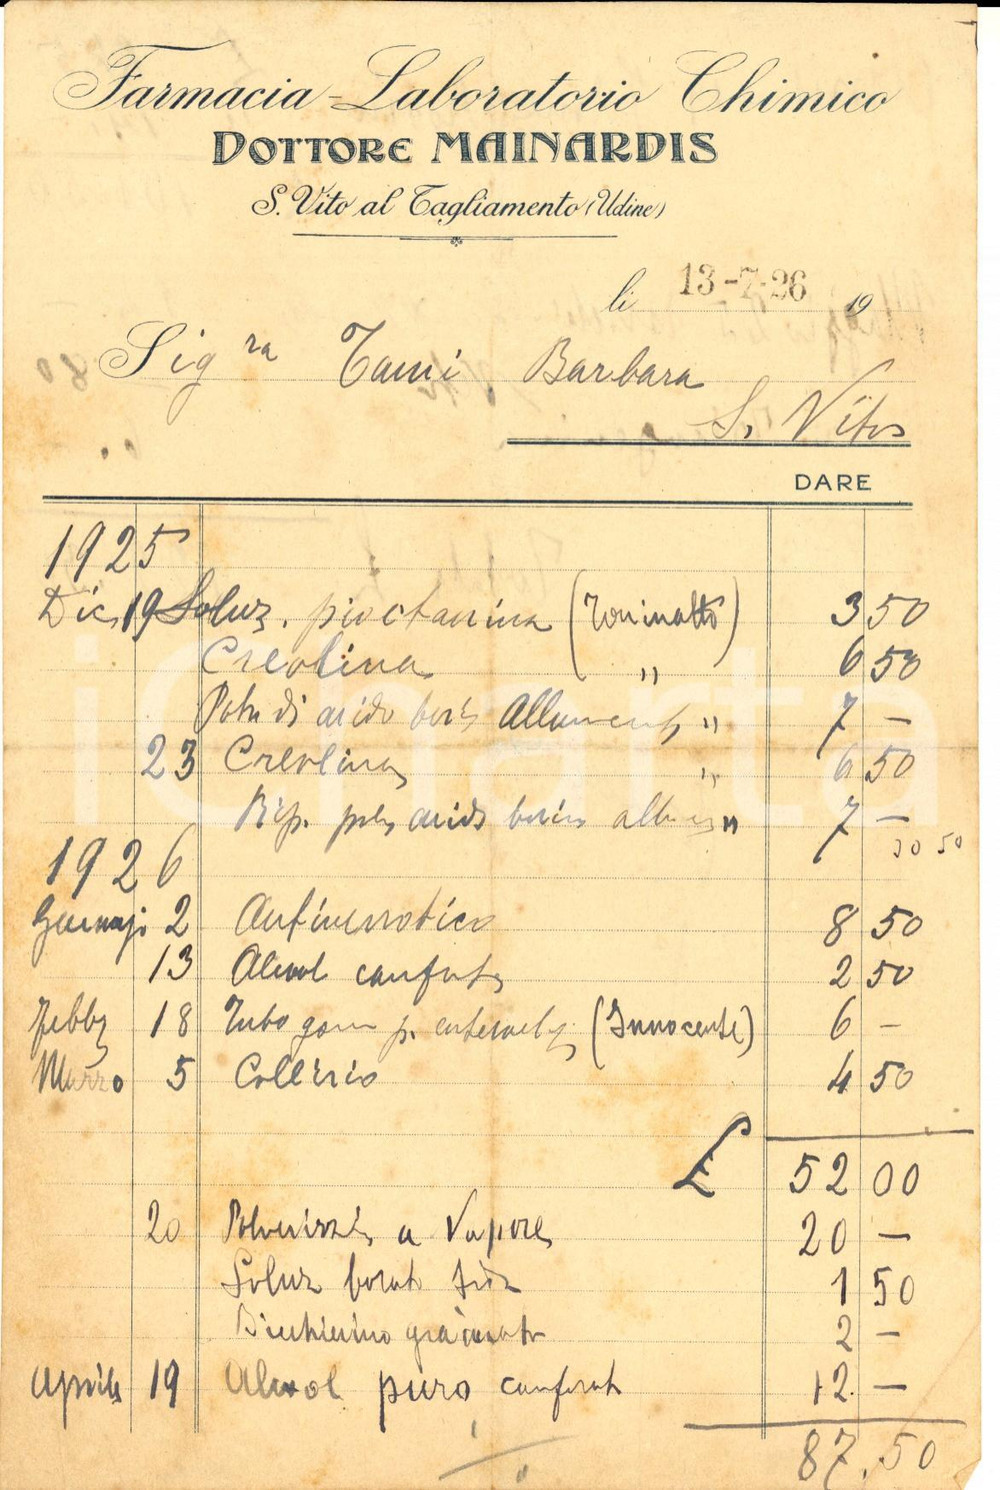 Farmacia-Laboratorio Chimico
DOTTORE MAINARDIS
S. Vito al Tagliamento (Udine)
li 13-7-26 19
Sig ra Tami Barbara
S. Vito
DARE
1925
Dic 19 Soluz. pioctanina (Toninatto) 3 50
Creolina " 6 50
di acido " 7 —
23 Creolina " 6 50
acido " 7 —
30 50
1926
Gennajo 2 Antinevrotico 8 50
13 Alcool canforato 2 50
Febb 18 Tubo p. (Innocente) 6 —
Marzo 5 Collirio 4 50
£ 52 00
20 a Vapore 20 —
Soluz 1 50
Bicchierino graduato 2 —
Aprile 19 Alcool puro canforato 12 —
87,50